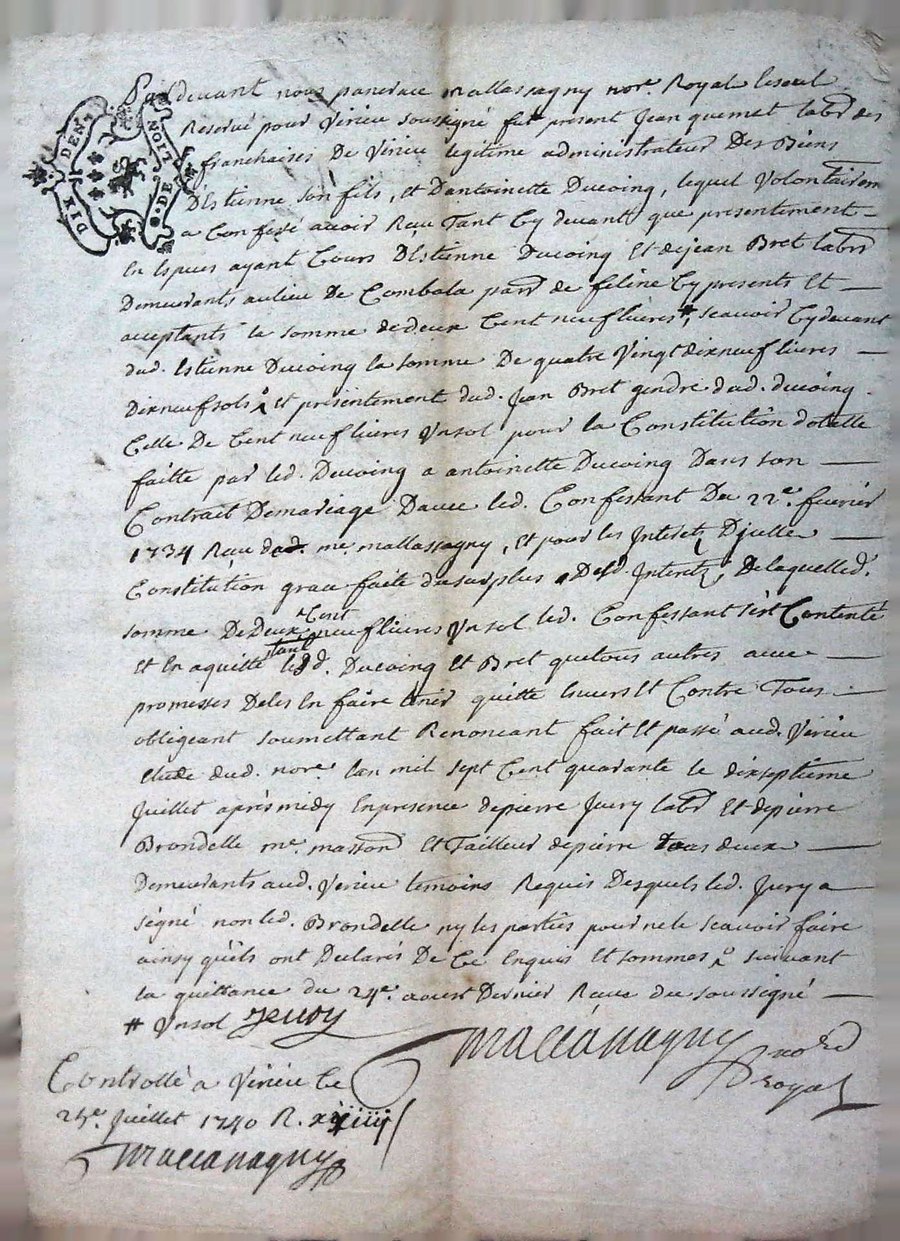 DIX DEN. NOIT. DE
Pardevant nous pancrace mallassagny nore. Royal
Reservé pour Virieu soussigné fut present Jean quemet labr des
franchises De Virieu legitime administrateur Des Biens
D'Estienne son fils, et D'antoinette Ducoing, lequel Volontairem
a Confessé avoir Receu Tant Cy devant que presentement
En Especes ayant Cours D'Estienne Ducoing Et dejean Bret labrs
Demeurants au lieu De Combala parr de feline Cy presents Et
acceptants la somme dedeux Cent neuf livres #, scavoir Cy devant
dud. Estienne Ducoing la somme De quatre Vingt dixneuf livres
Dixneuf sols Et presentement dud. Jean Bret gendre dud. ducoing
Celle De Cent neuf livres Un sol pour la Constitution dotelle
faitte par led. Ducoing a antoinette Ducoing Dans son
Contrait Demariage Davec led. Confessant Du 22e. fevrier
1734 Receu dud. me mallassagny, Et pour les Interets D'jcelle
Constitution grace faite du surplus Desd. Interets, De laquelled.
somme DeDeux Cent neuf livres Un sol led. Confessant s'est Contenté
Et En aquitte tant lesd. Ducoing Et Bret que tous autres avec
promesses Deles En faire tenir quitte Envers Et Contre Tous
obligeant soumettant Renonceant fait Et passé aud. Virieu
Etude dud. nore. Lan mil sept Cent quarante le dixseptieme
Juillet après midy En presence depierre Jury labr Et depierre
Brondelle me. masson Et Tailleur depierre tous deux
Demeurants aud. Virieu temoins Requis Desquels led. Jury a
signé non led. Brondelle ny les parties pour ne le scavoir faire
ainsy qu'ils ont Declarés De Ce Enquis Et sommés suivant
la quittance du 24e. aoust Dernier Receue du soussigné
# Un sol Jeury
Mallassagny nore
royal
Controllé a Virieu Ce
24e. Juillet 1740 R.
Mallassagny